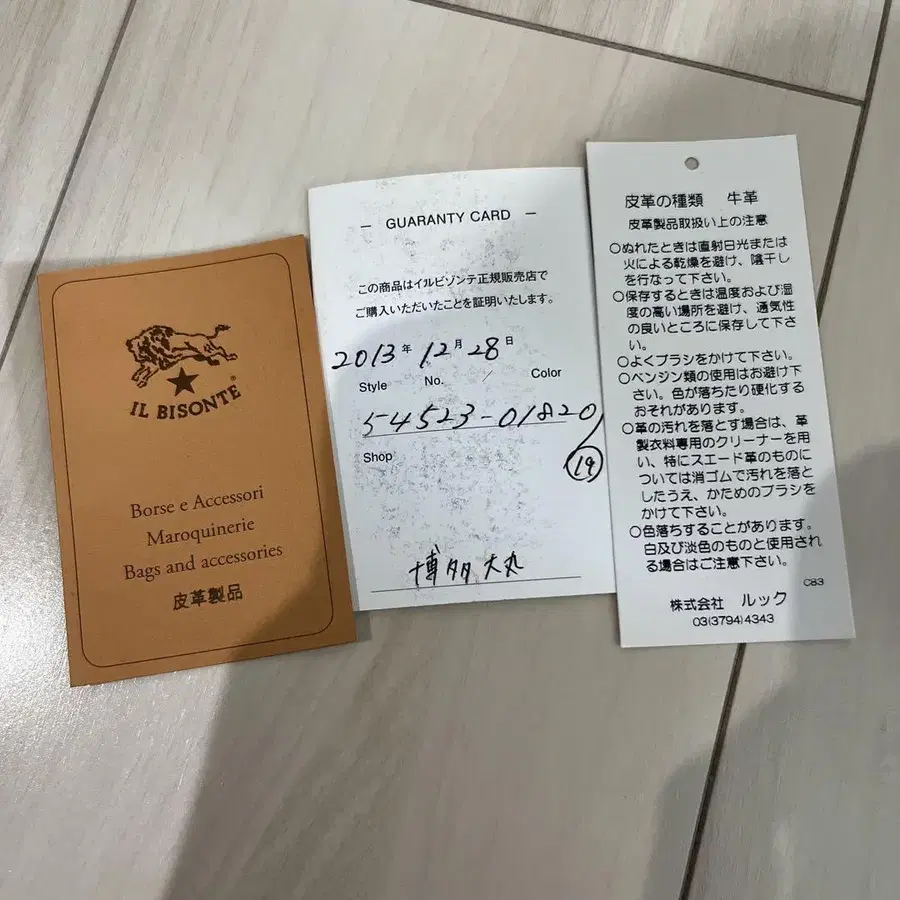 IL BISONTE®
Borse e Accessori
Maroquinerie
Bags and accessories
皮革製品
— GUARANTY CARD —
この商品はイルビゾンテ正規販売店で
ご購入いただいたことを証明いたします。
2013年 12月 28日
Style No. / Color
54523-01820/
⑲
Shop
博多大丸
皮革の種類 牛革
皮革製品取扱い上の注意
○ぬれたときは直射日光または
火による乾燥を避け、陰干し
を行なって下さい。
○保存するときは温度および湿
度の高い場所を避け、通気性
の良いところに保存して下さ
い。
○よくブラシをかけて下さい。
○ベンジン類の使用はお避け下
さい。色が落ちたり硬化する
おそれがあります。
○革の汚れを落とす場合は、革
製衣料専用のクリーナーを用
い、特にスエード革のものに
ついては消ゴムで汚れを落と
したうえ、かためのブラシを
かけて下さい。
○色落ちすることがあります。
白及び淡色のものと使用され
る場合はご注意下さい。
C83
株式会社 ルック
03(3794)4343